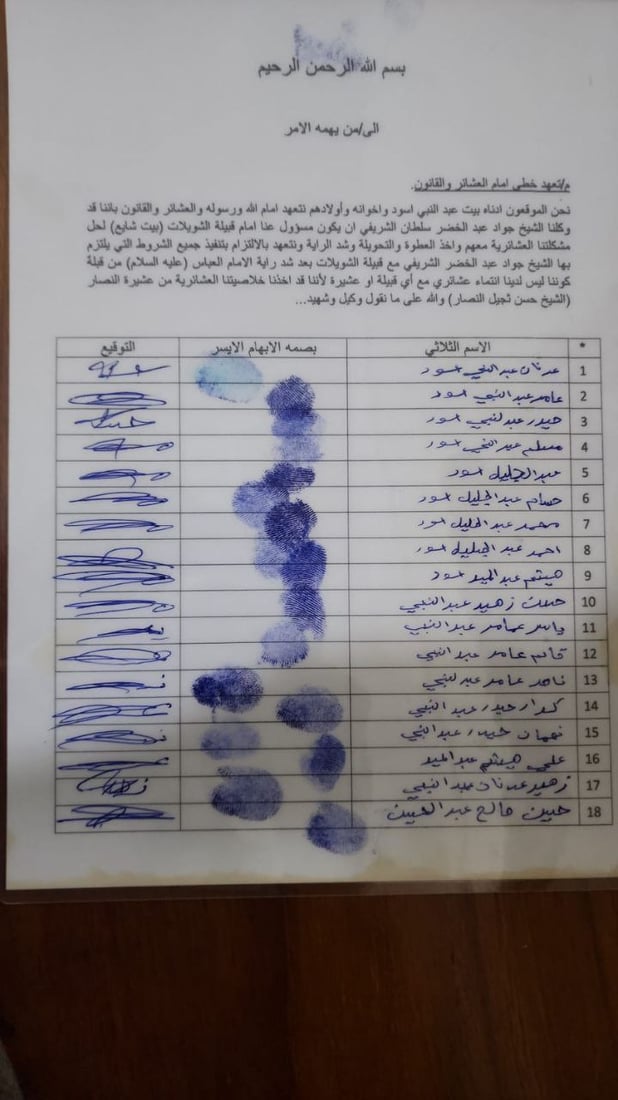 بسم الله الرحمن الرحيم
الى/من يهمه الامر
م/تعهد خطي امام العشائر والقانون.
نحن الموقعون ادناه بيت عبد النبي اسود واخوانه وأولادهم نتعهد امام الله ورسوله والعشائر والقانون باننا قد
وكلنا الشيخ جواد عبد الخضر سلطان الشريفي ان يكون مسؤول عنا امام قبيلة الشويلات (بيت شايع) لحل
مشكلتنا العشائرية معهم واخذ العطوة والتحويلة وشد الراية ونتعهد بالالتزام بتنفيذ جميع الشروط التي يلتزم
بها الشيخ جواد عبد الخضر الشريفي مع قبيلة الشويلات بعد شد راية الامام العباس (عليه السلام) من قبلة
كوننا ليس لدينا انتماء عشائري مع أي قبيلة او عشيرة لأننا قد اخذنا خلاصيتنا العشائرية من عشيرة النصار
(الشيخ حسن ثجيل النصار) والله على ما نقول وكيل وشهيد...
* الاسم الثلاثي بصمه الابهام الايسر التوقيع
1 عدنان عبد النبي اسود
2 عامر عبد النبي اسود
3 حيدر عبد النبي اسود
4 مسلم عبد النبي اسود
5 عبد الجليل اسود
6 حسام عبد الجليل اسود
7 محمد عبد الجليل اسود
8 احمد عبد الجليل اسود
9 هيثم عبد اسود
10 زهيد عبد النبي
11 ياسر عامر عبد النبي
12 قاسم عامر عبد النبي
13 عامر عبد النبي
14 كرار حيدر عبد النبي
15 نعمان حيدر عبد النبي
16 علي هيثم عبد
17 زهيد عدنان عبد النبي
18 حسين صالح عبد الحسين